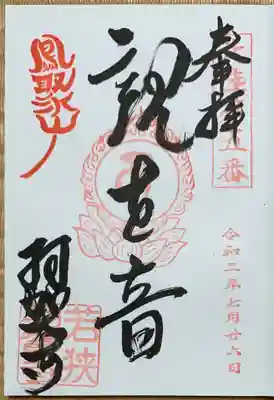 奉拝
番
令和二年七月廿六日
観世音
鳳聚山
羽賀寺
若狭